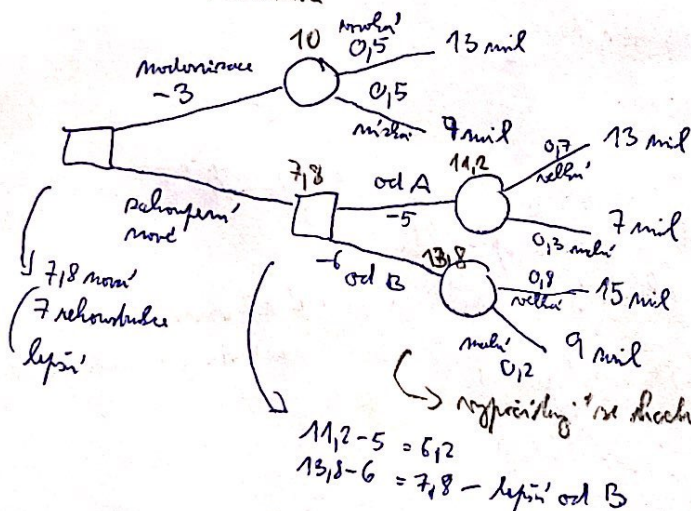 modernizace
-3
10
vysoká
0,5
13 mil
0,5
nízká
7 mil
zakoupení
nové
7,8
od A
-5
11,2
0,7
velká
13 mil
0,3 malá
7 mil
-6 od B
13,8
0,8
velká
15 mil
malá
0,2
9 mil
7,8 nová
7 rekonstrukce
lepší
vypočítají se
11,2-5 = 6,2
13,8-6 = 7,8 - lepší od B